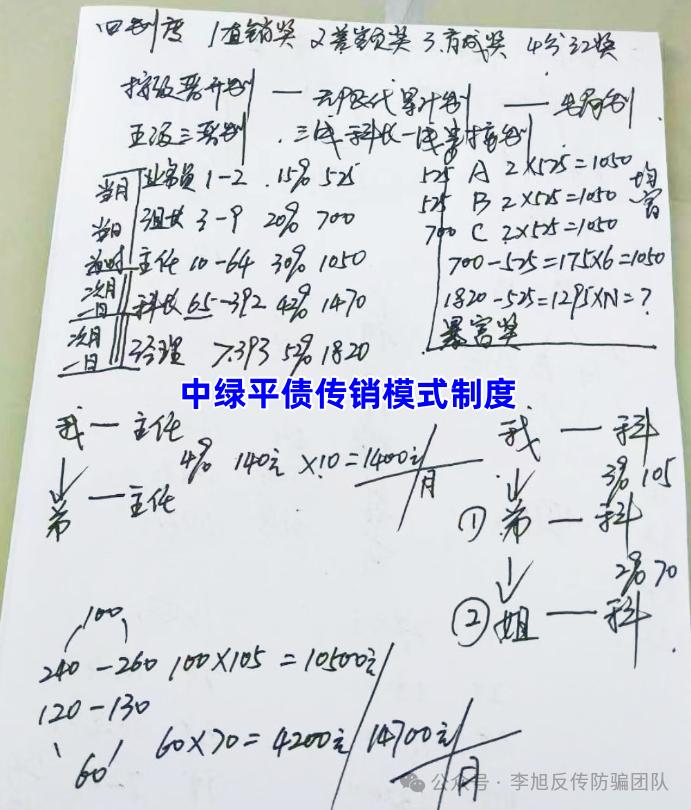 四制度 1直销奖 2差额奖 3.育成奖 4分红奖
按级晋升制 — 无限代累计制 — 出局制
五级三晋制 . 三成科长一成
当月 业务员 1-2 .15% 525
当日 组长 3-9 20% 700
当时 主任 10-64 30% 1050
次月一日 科长 65-392 42% 1470
次月一日 经理 >393 52% 1820
525 A 2×525=1050 均富
525 B 2×525=1050
700 C 2×525=1050
700-525=175×6=1050
1820-525=1295×N=?
暴富奖
中绿平债传销模式制度
我 — 主任
4% 140元 ×10=1400元/月
弟 — 主任
我 — 科
3% 105
① 弟 — 科
2% 70
② 姐 — 科
100
240-260 100×105=10500元
120-130
60 60×70=4200元 14700元/月
公众号·李旭反传防骗团队